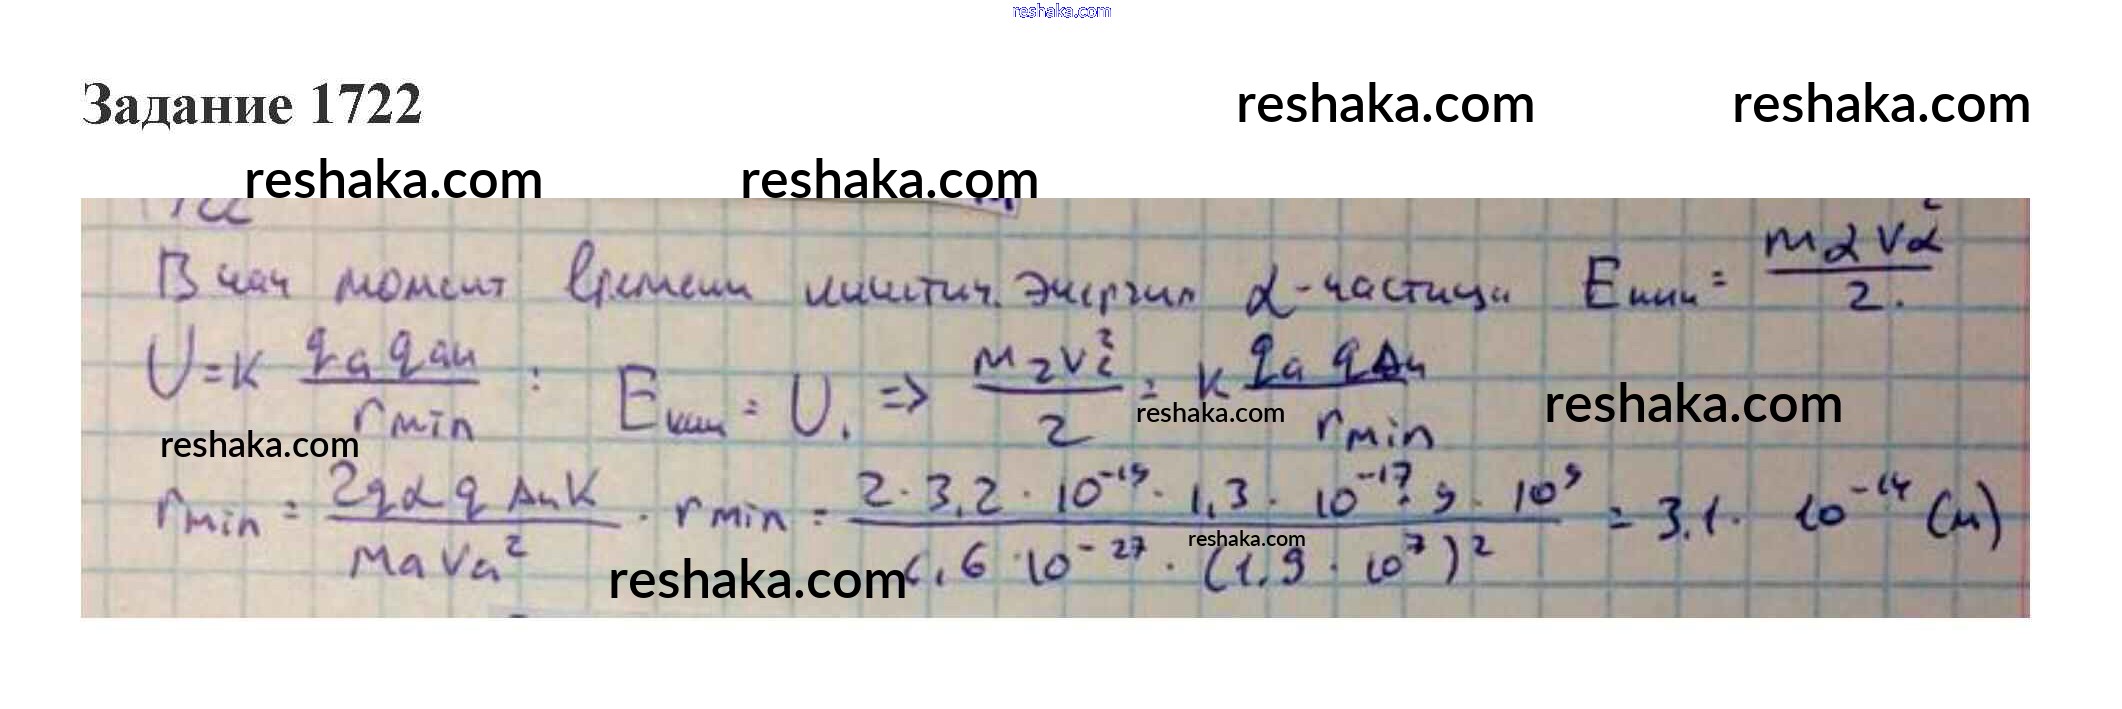 reshaka.com
Задание 1722
reshaka.com reshaka.com
reshaka.com reshaka.com
В нач момент времени кинетич. энергия α-частицы Eкин = mαvα² / 2.
U = k qα qAu / rmin : Eкин = U. => mαvα² / 2 = k qα qAu / rmin
reshaka.com reshaka.com
reshaka.com
rmin = 2qα qAu k / mαvα² . rmin = 2 · 3,2 · 10⁻¹⁹ · 1,3 · 10⁻¹⁷ · 9 · 10⁹ / 6,6 · 10⁻²⁷ · (1,9 · 10⁷)² = 3,1 · 10⁻¹⁴ (м)
reshaka.com
reshaka.com